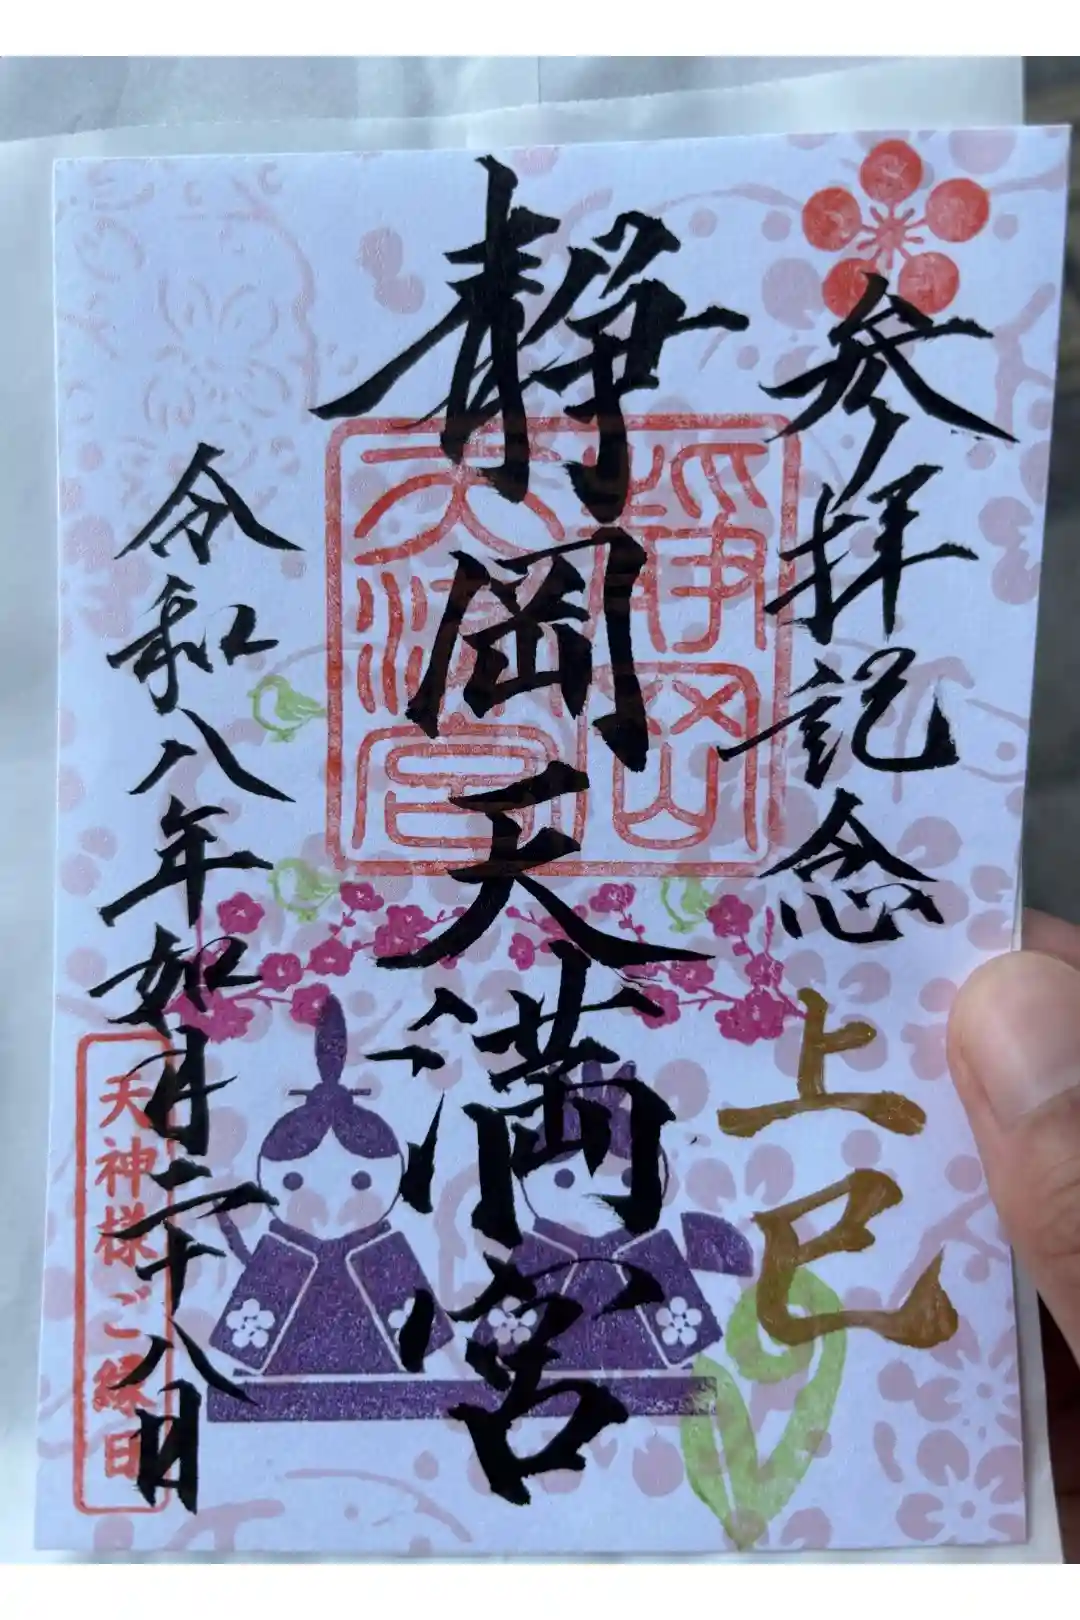 参拝記念
上巳
靜岡天満宮
静岡
天満宮
令和八年如月二十八日
天神様ご縁日